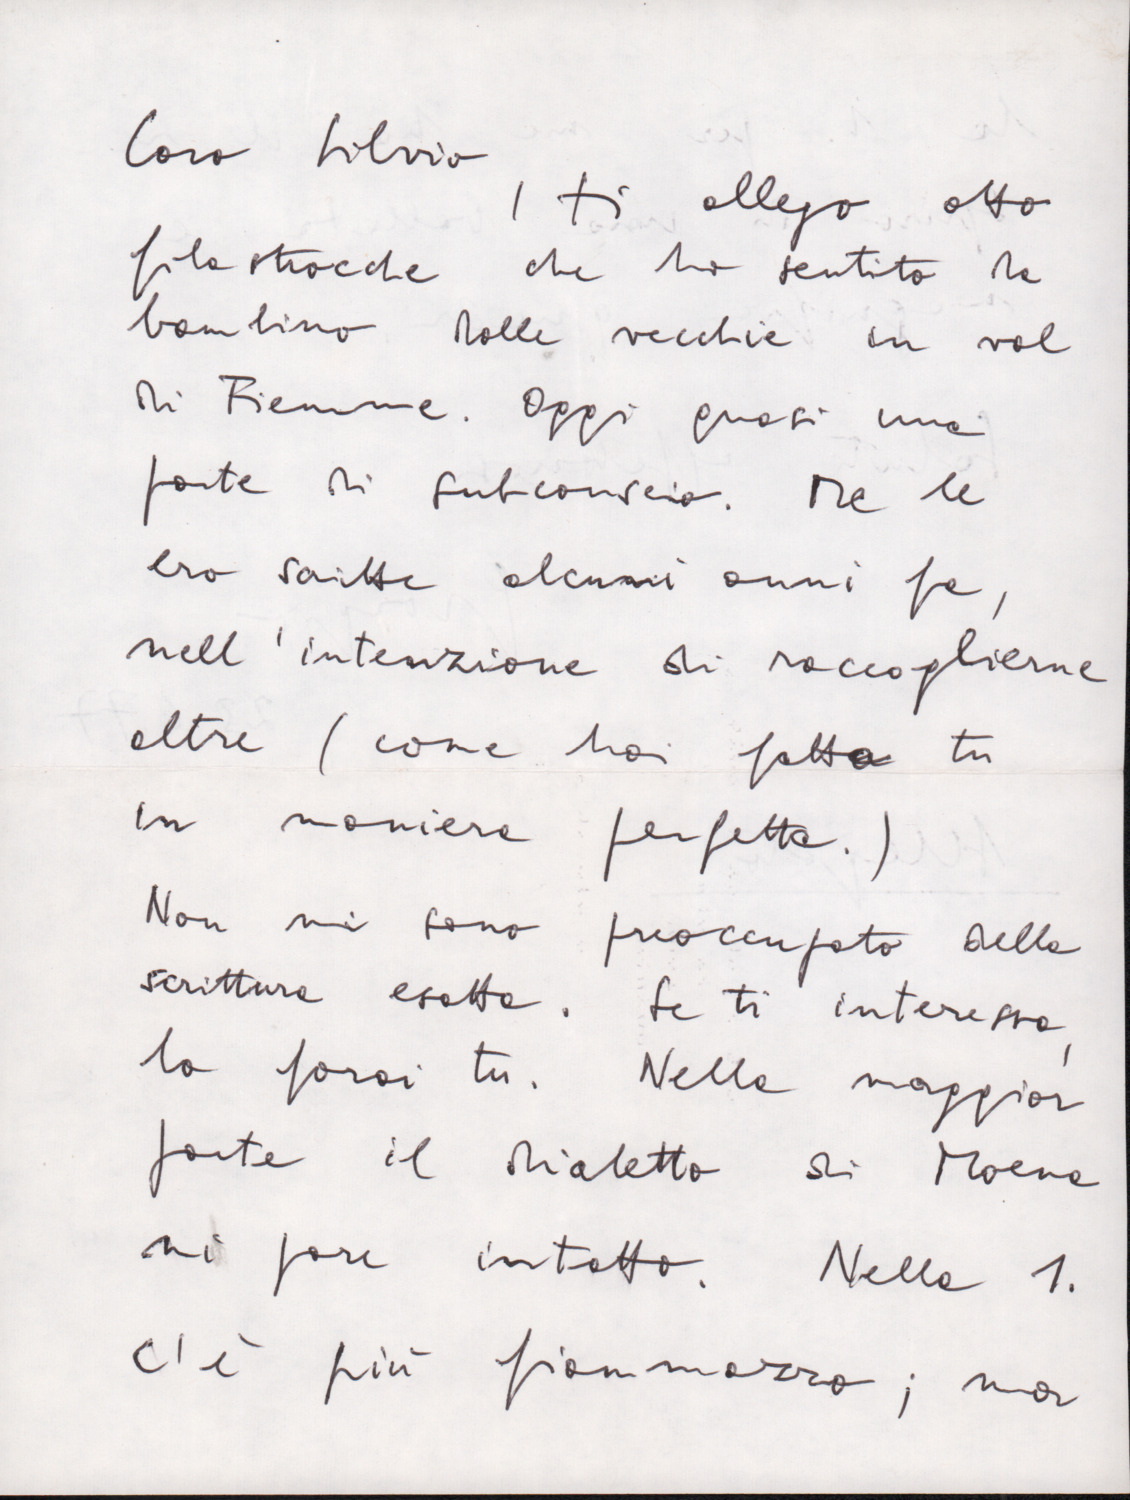 Caro Silvio
, ti allego otto
filastrocche che ho sentito da
bambino dalle vecchie in val
di Fiemme. Oggi quasi una
parte di subconscio. Me le
ero scritte alcuni anni fa,
nell'intenzione di raccoglierne
altre (come hai fatto tu
in maniera perfetta.)
Non mi sono preoccupato della
scrittura esatta. Se ti interessa,
la farai tu. Nella maggior
parte il dialetto di Moena
mi pare intatto. Nella 1.
c'è più fiammazzo; ma